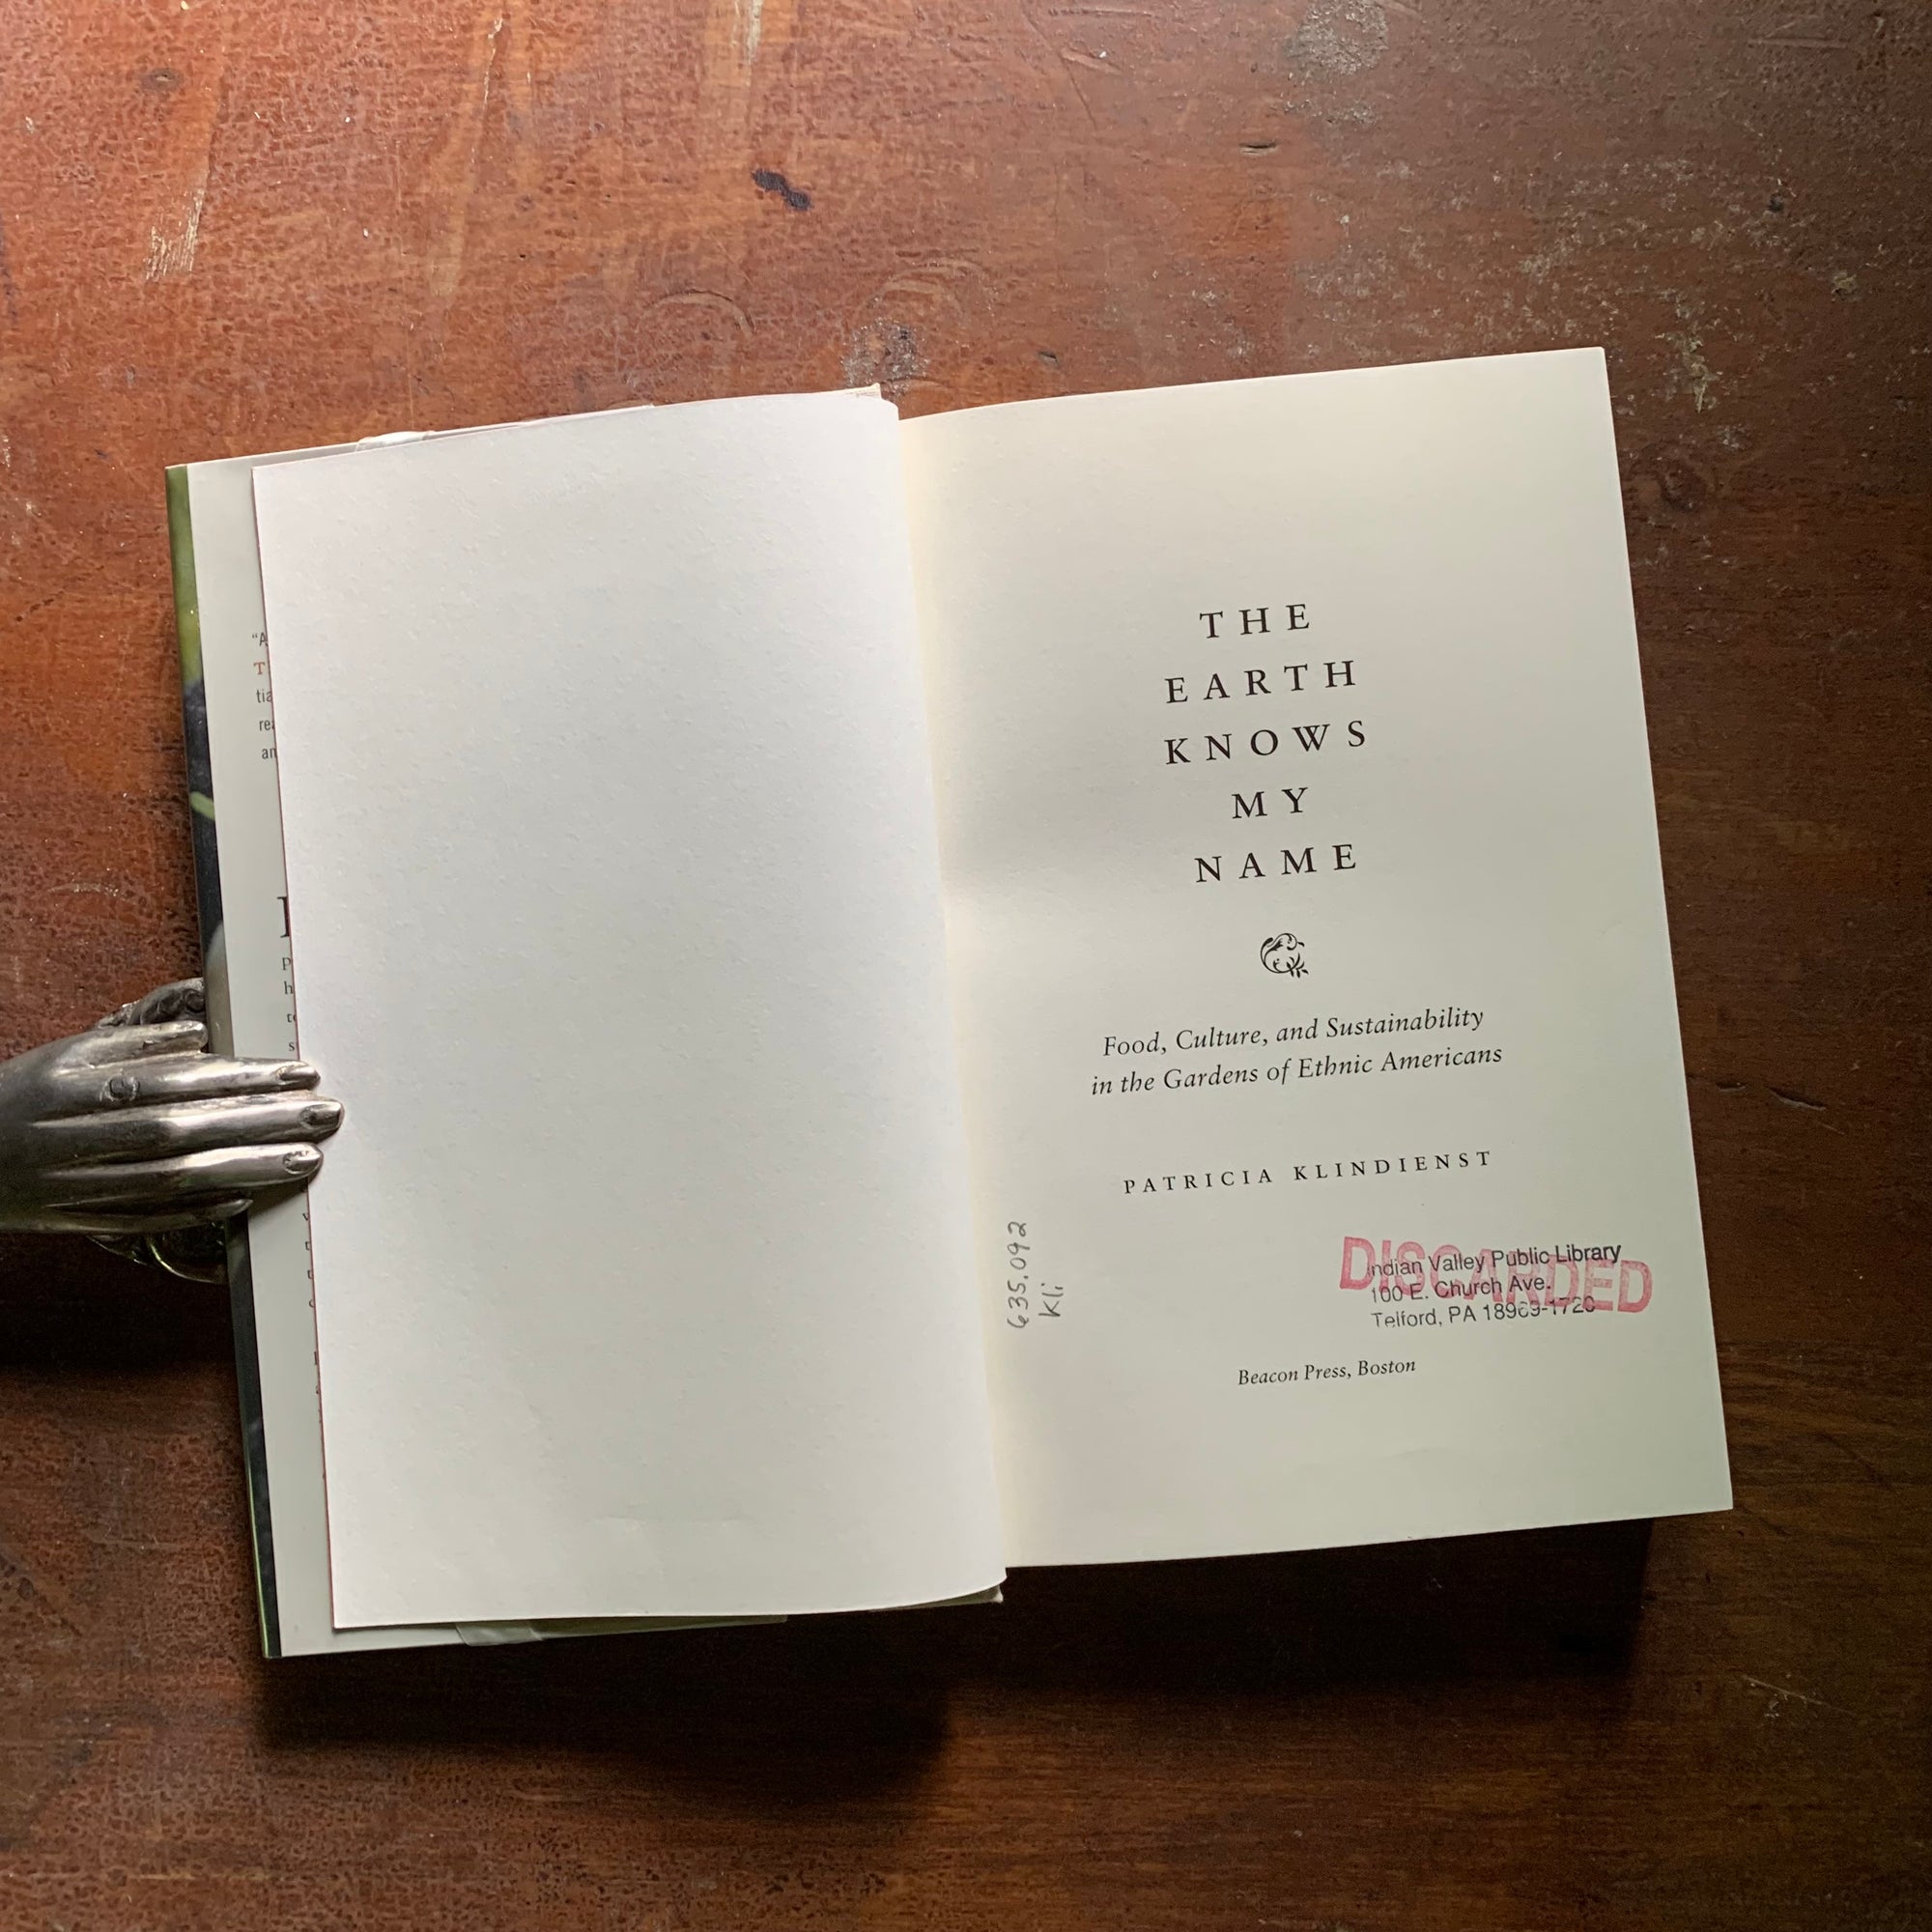 "A
T
tia
rea
an
P
h
THE
EARTH
KNOWS
MY
NAME
Food, Culture, and Sustainability
in the Gardens of Ethnic Americans
PATRICIA KLINDIENST
635.092
Kli
DISCARDED
Indian Valley Public Library
100 E. Church Ave.
Telford, PA 18969-1720
Beacon Press, Boston